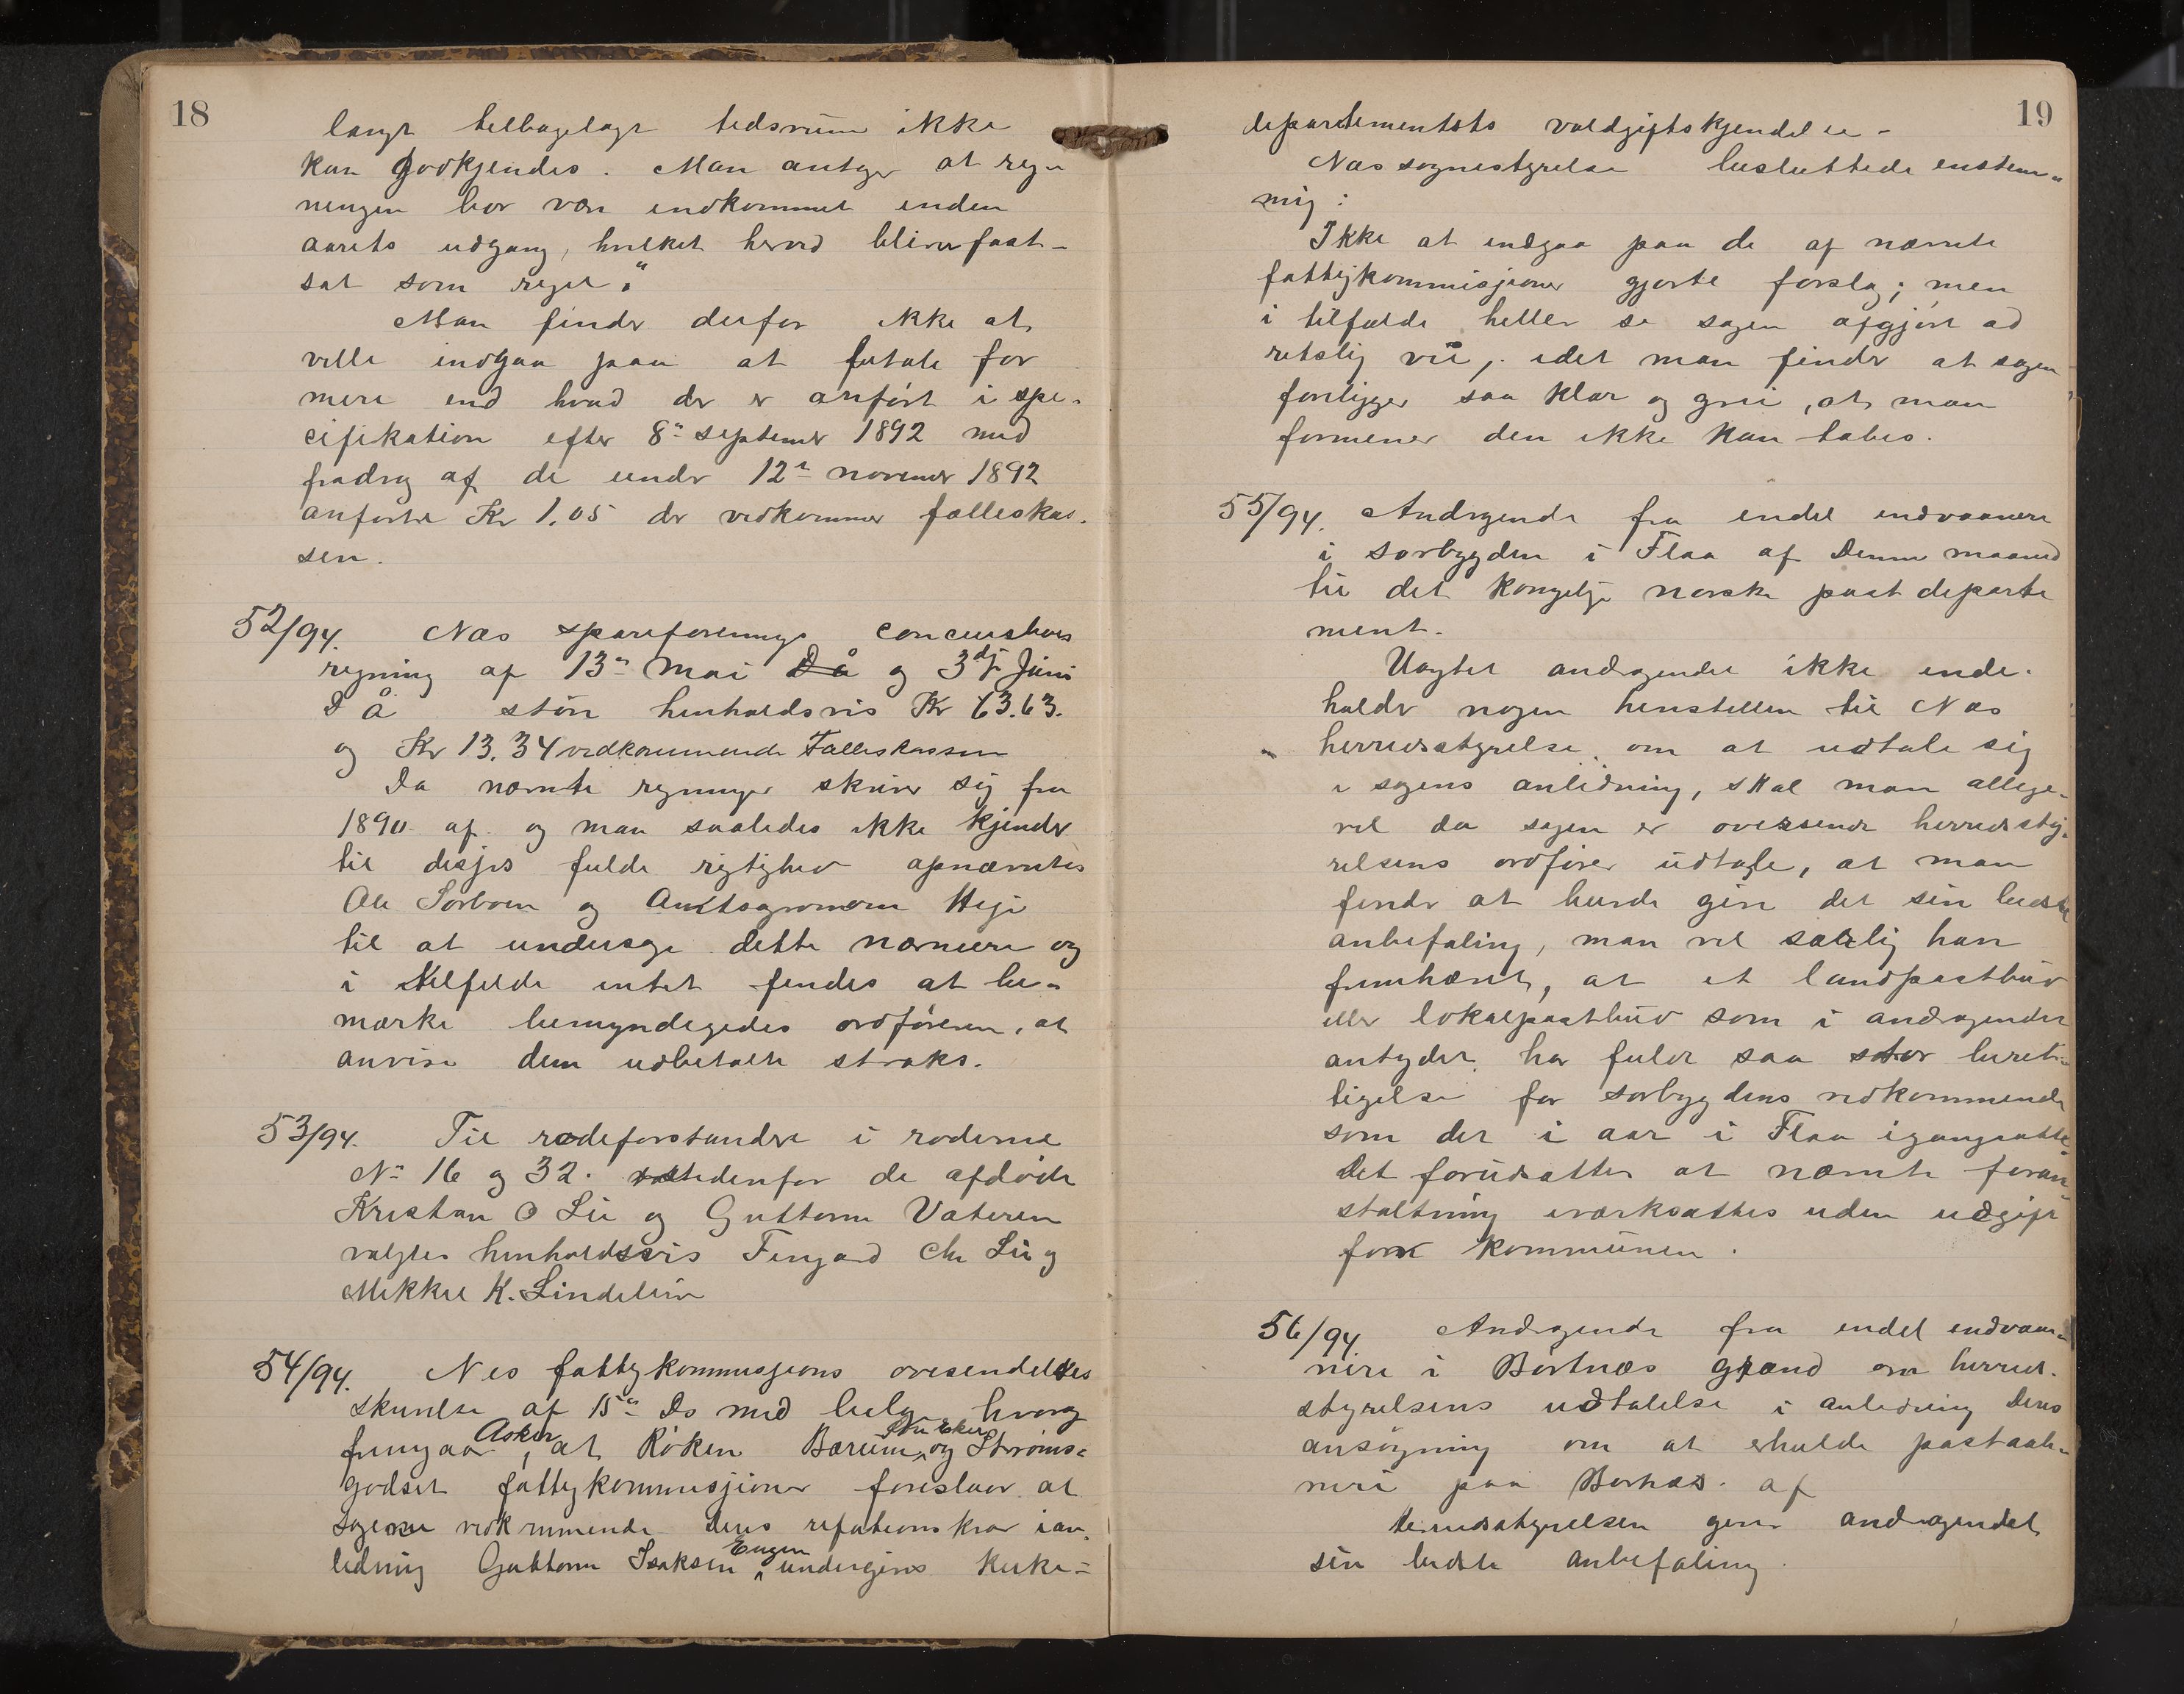 18
langt tilbagelagt tidsrum ikke
kan godkjendes. Man antager at reg-
ningen bør være indkommet inden
aarets udgang, hvilket herved bliver fast-
sat som regel."
Man finder derfor ikke at
ville indgaa paa at betale for
mere end hvad der er anført i spe-
cifikation efter 8de septemer 1892 med
fradrag af de under 12te novemer 1892
anførte Kr 1.05 der vedkommer fælleskas-
sen.
52/94. Næs spareforenings
regning af 13de Mai D å og 3dj Juni
D Å stor henholdsvis Kr 63.63.
og Kr 13.34 vedkommende Fælleskassen
Da nævnte regninger skriver sig fra
1890 af og man saaledes ikke kjender
til disses fulde rigtighed opnævntes
Ole Sørbøen og Amtsagronom
til at undersøge dette nærmere og
i tilfelde intet findes at be-
mærke bemyndigedes ordføreren, at
anvise dem udbetalte straks.
53/94. Til rodeforstandere i roderne
No 16 og 32. istedenfor de afdøde
Kristian O Lie og Guttorm Vateren
valgtes henholdsvis Fingard Chr Lie og
Mikkel K. Lindelien
54/94. Nes fattigkommissjons oversendelses
skrivelse af 15de Ds med bilag hvoraf
fremgaar, at Asker Røken Bærum, og Strøms-
godset fattigkommissjoner foreslaar at
sagerne vedkommende deres refutionskrav i an-
ledning Guttorm Isaksen Eugen undergives kirke-
19
departementets voldgiftskjendelse -
Næs sognestyrelse besluttede enstem-
mig:
Ikke at indgaa paa de af nævnte
fattigkommisjoner gjorte forslag; men
i tilfælde heller se sagen afgjort ad
retslig vei, idet man finder at sagen
foreligger saa klar og grei, at man
formener den ikke kan tabes.
55/94. Andragende fra endel indvaanere
i sørbygden i Flaa af Denne maaned
til det kongelige norske post departe
ment.
Uagtet andragendet ikke inde-
holder nogen henstillen til Næs
herredsstyrelse om at udtale sig
i sagens anledning, skal man allige-
vel da sagen er oversendt herredssty-
relsens ordfører udtale, at man
finder at burde give det sin bedste
anbefaling, man vil særlig have
fremhævet, at et landpostbud
eller lokalpostbud som i andragendet
antydet, har fuldt saa stor beret-
tigelse for sørbygdens vedkommende
som det i aar i Flaa igangsatte
Det forudsættes at nævnte foran-
staltning iværksættes uden udgift
for kommunen.
56/94 Andragende fra endel indvaa-
nere i Børtnæs grænd om herred-
styrelsens udtalelse i anledning deres
ansøgning om at erholde postaab-
neri paa Bortnæs. af
Herredsstyrelsen giver andragendet
sin bedste anbefaling.